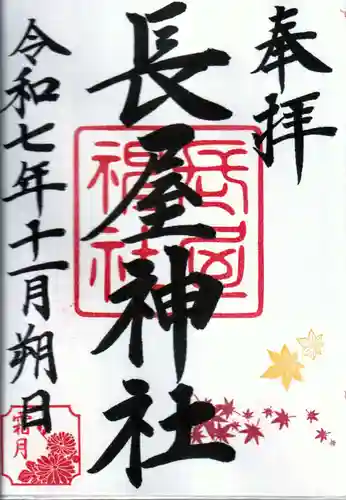 奉拝
長屋神社
令和七年十一月朔日
長屋神社
霜月